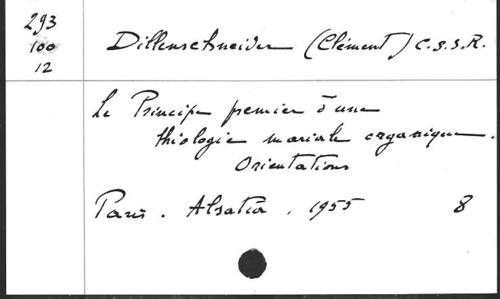 293
100
12
Dillenschneider (Clément) C.S.S.R.
Le Principe premier d'une
théologie mariale organique.
Orientations
Paris. Alsatia. 1955 8